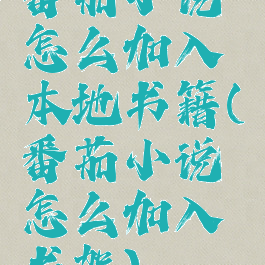 番茄小说
怎么加入
本地书籍(
番茄小说
怎么加入
书架)